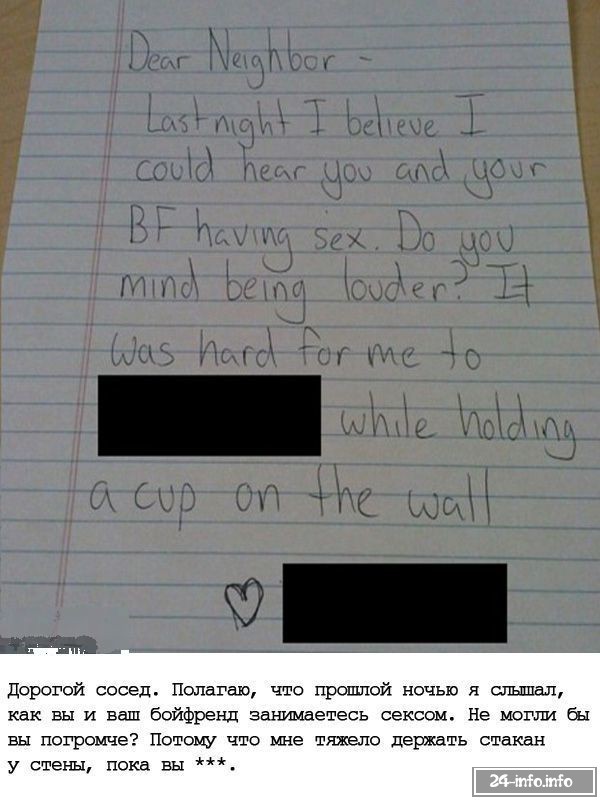 Dear Neighbor -
Last night I believe I
could hear you and your
BF having sex. Do you
mind being louder? It
was hard for me to
while holding
a cup on the wall
Дорогой сосед. Полагаю, что прошлой ночью я слышал,
как вы и ваш бойфренд занимаетесь сексом. Не могли бы
вы погромче? Потому что мне тяжело держать стакан
у стены, пока вы ***.
24-info.info